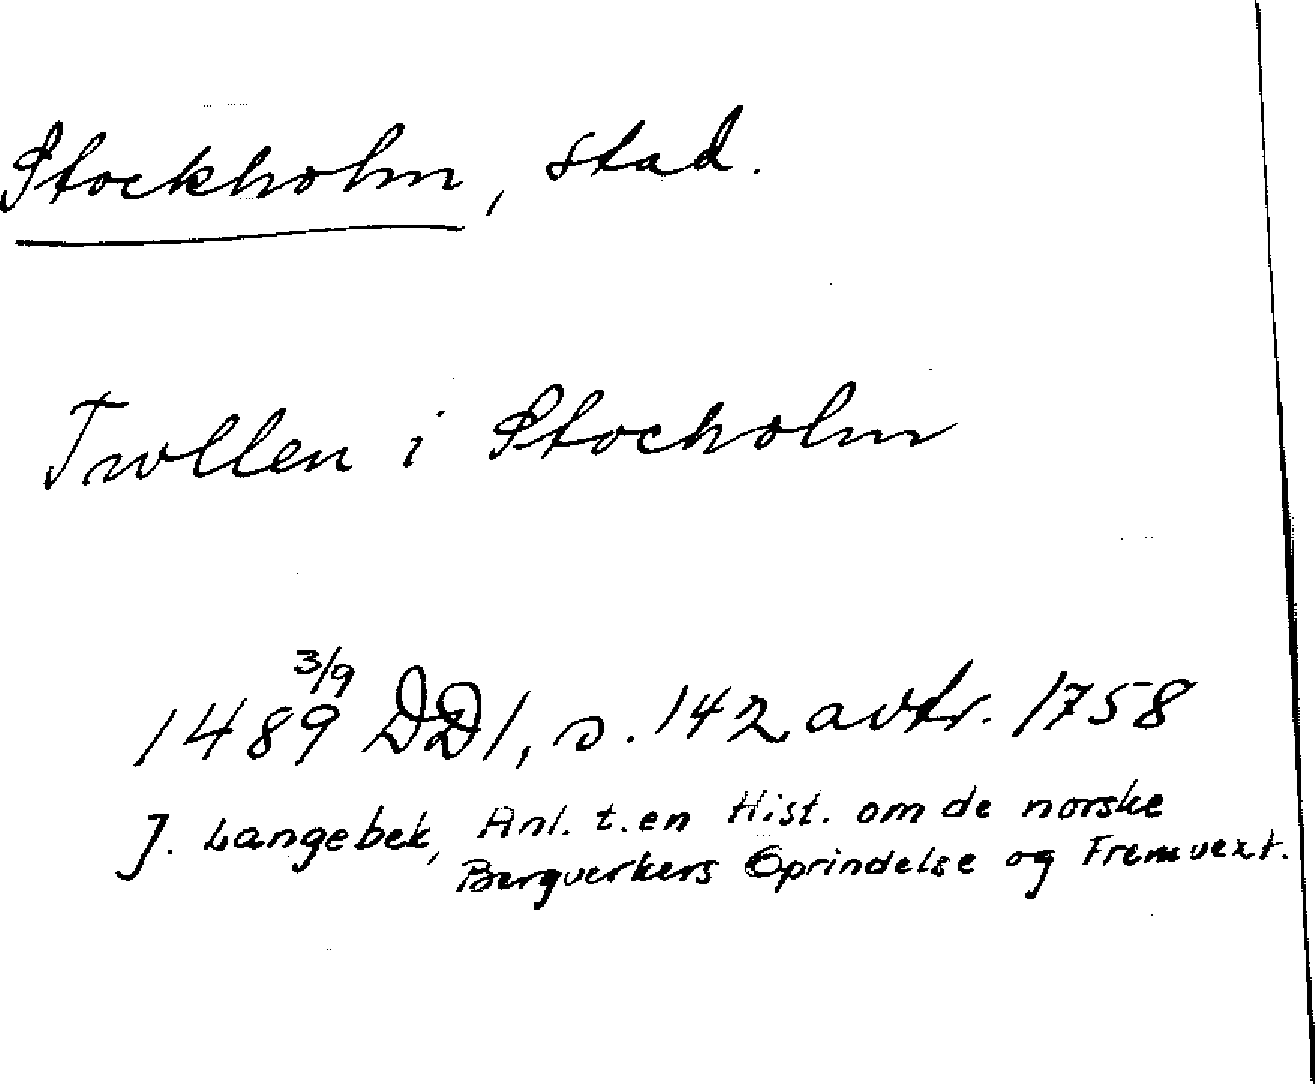 Stockholm, stad.
Trollen i Stocholm
1489 3/9 DD1, s. 142 avtr. 1758
J. Langebek, Anl. t. en Hist. om de norske
Bergverkers Oprindelse og Fremvext.